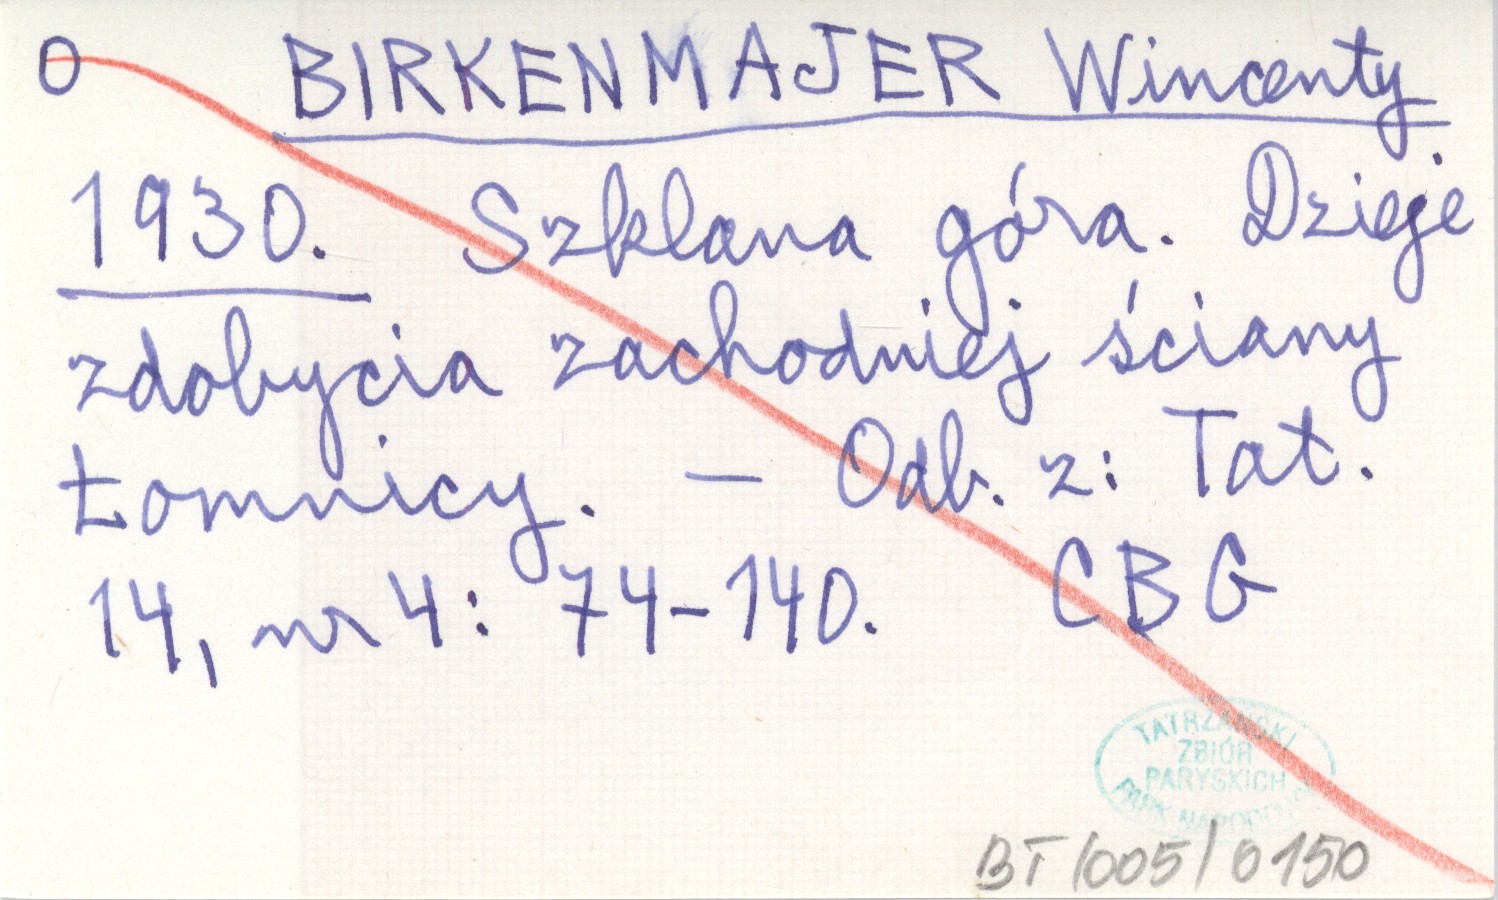 O BIRKENMAJER Wincenty
1930. Szklana góra. Dzieje
zdobycia zachodniej ściany
Łomnicy. — Odb. z: Tat.
14, nr 4: 74-140. CBG
TATRZAŃSKI
ZBIÓR
PARYSKICH
PARK NARODOWY
BT/005/0150